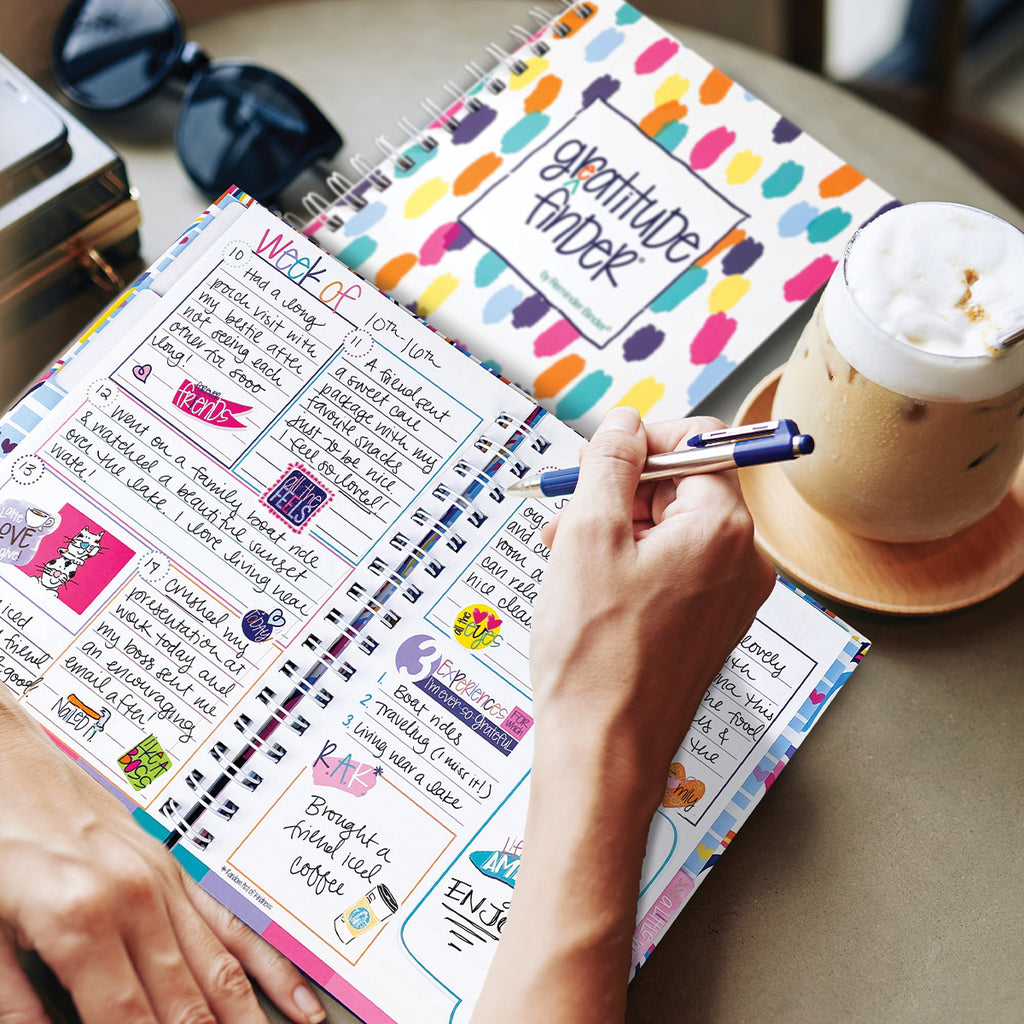 greatitude
finder®
by Reminder Binder®
Week of
10th-16th
10
Had a long
porch visit with
my bestie after
not seeing each
other for sooo
long!
friends
11
A friend sent
a sweet care
package with my
favorite snacks
just to be nice
I feel so loved!!
all the
FEELS
12
Went on a family boat ride
& watched a beautiful sunset
over the lake. I love living near
water!
13
Latte
LOVE
give
iced
friend
good
14
Crushed my
presentation at
work today and
my boss sent me
an encouraging
email after!
today
Nailed it
like a
BOSS
and
room a
can rela
nice clean
all the
eyes
3 Experiences
I'm ever-so-grateful
FOR which
1. Boat rides
2. Traveling (I miss it!)
3. Living near a lake
R.A.K*
Brought a
friend iced
coffee
*Random Act of Kindness
ENJO
lovely
this
food
&
the
mily
a little